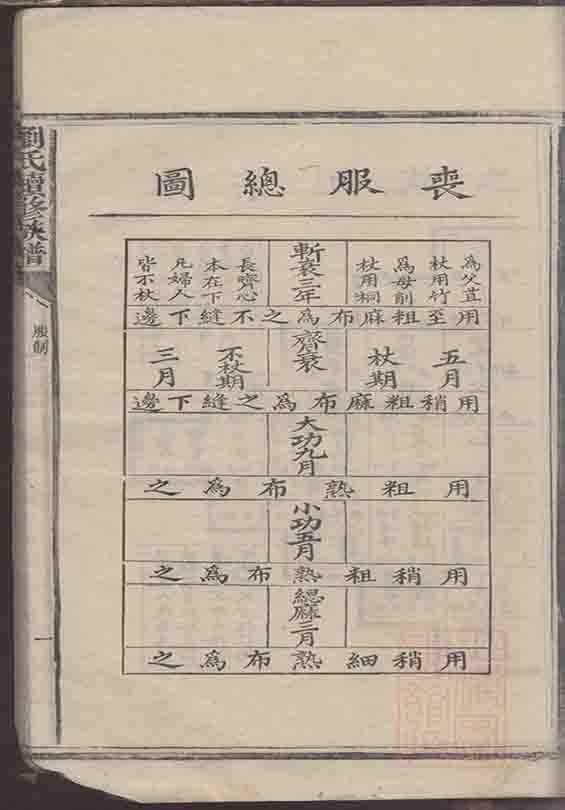 劉氏續修族譜
服制
一
喪服總圖
為父苴
杖用竹
為母削
杖用桐
斬衰三年
長齊心
本在下
凡婦人
皆不杖
用至粗麻布為之不縫下邊
五月
杖期
齊衰
不杖期
三月
用稍粗麻布為之縫下邊
大功九月
用粗熟布為之
小功五月
用稍粗熟布為之
緦麻三月
用稍細熟布為之